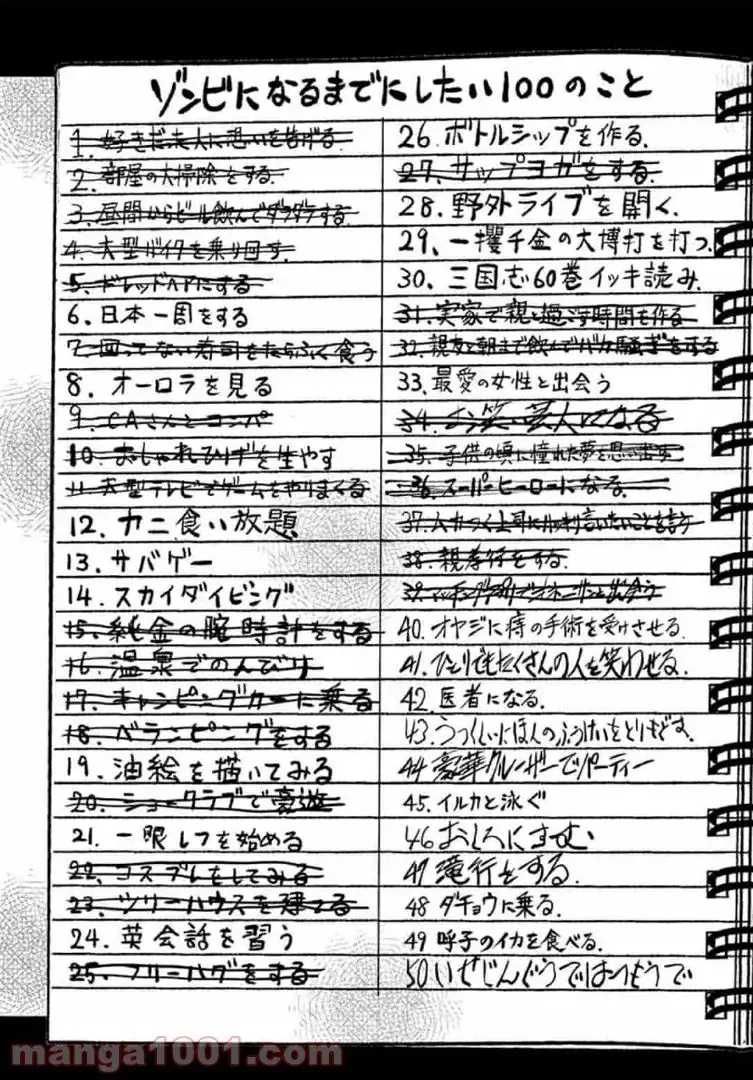 ゾンビになるまでにしたい100のこと
1. 好きだった人に思いを告げる
2. 部屋の大掃除をする.
3. 昼間からビール飲んでダラダラする
4. 大型バイクを乗り回す.
5. ドレッドヘアにする
6. 日本一周をする
7. 回ってない寿司をたらふく食う
8. オーロラを見る
9. CAさんとコンパ
10. おしゃれひげを生やす
11. 大型テレビでゲームをやりまくる
12. カニ食い放題
13. サバゲー
14. スカイダイビング
15. 純金の腕時計をする
16. 温泉でのんびり
17. キャンピングカーに乗る
18. ベランピングをする
19. 油絵を描いてみる
20. ショークラブで豪遊
21. 一眼レフを始める
22. コスプレをしてみる
23. ツリーハウスを建てる
24. 英会話を習う
25. フリーハグをする
26. ボトルシップを作る.
27. サップヨガをする.
28. 野外ライブを開く.
29. 一攫千金の大博打を打つ.
30. 三国志60巻イッキ読み.
31. 実家で親と過ごす時間を作る
32. 親友と朝まで飲んでバカ騒ぎをする
33. 最愛の女性と出会う
34. お笑い芸人になる
35. 子供の頃に憧れた夢を思い出す
36. スーパーヒーローになる.
37. ムカつく上司にハッキリ言いたいことを言う
38. 親孝行をする.
39. で と出会う
40. オヤジに痔の手術を受けさせる.
41. ひとりでもたくさんの人を笑わせる.
42. 医者になる.
43. うつくしいにほんのふうけいをとりもどす.
44. 豪華クルーザーでパーティー
45. イルカと泳ぐ
46 おしろにすむ
47 滝行をする.
48 ダチョウに乗る.
49 呼子のイカを食べる.
50 いせじんぐうではつもうで
manga1001.com